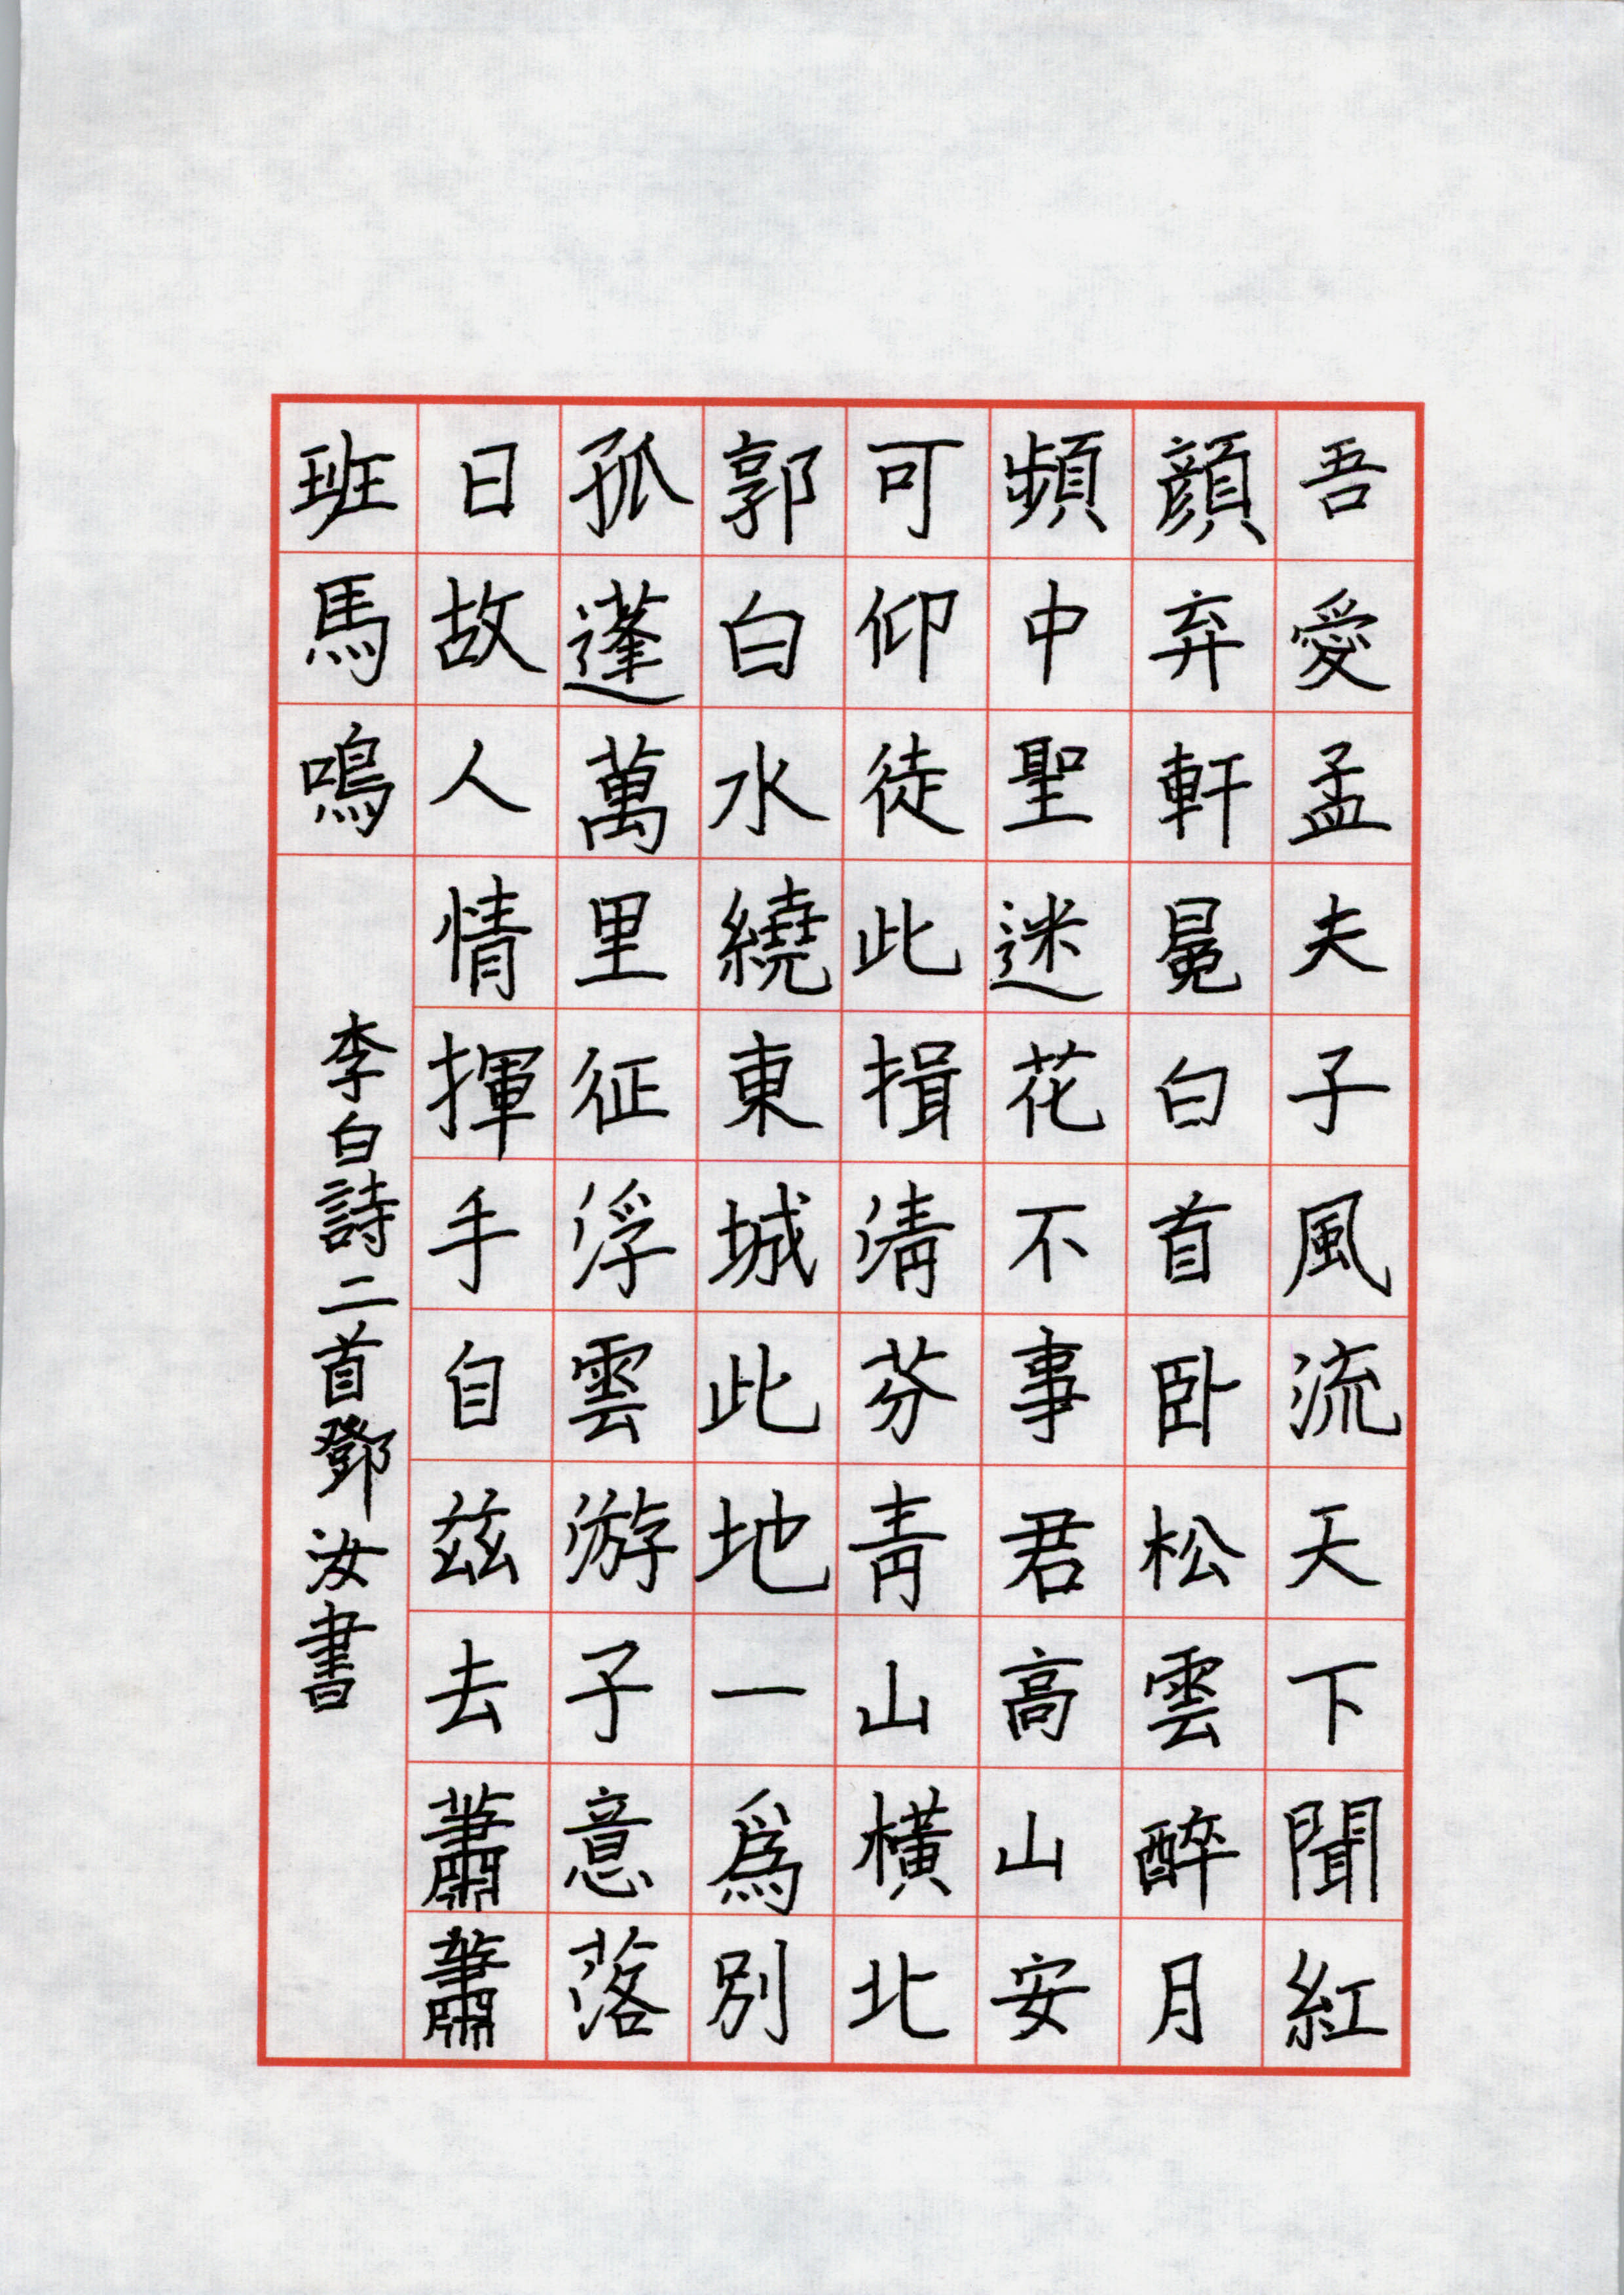 吾愛孟夫子風流天下聞紅
顔弃軒冕白首卧松雲醉月
頻中聖迷花不事君高山安
可仰徒此揖清芬青山橫北
郭白水繞東城此地一爲別
孤蓬萬里征浮雲游子意落
日故人情揮手自兹去蕭蕭
班馬鳴
李白詩二首鄧汝書